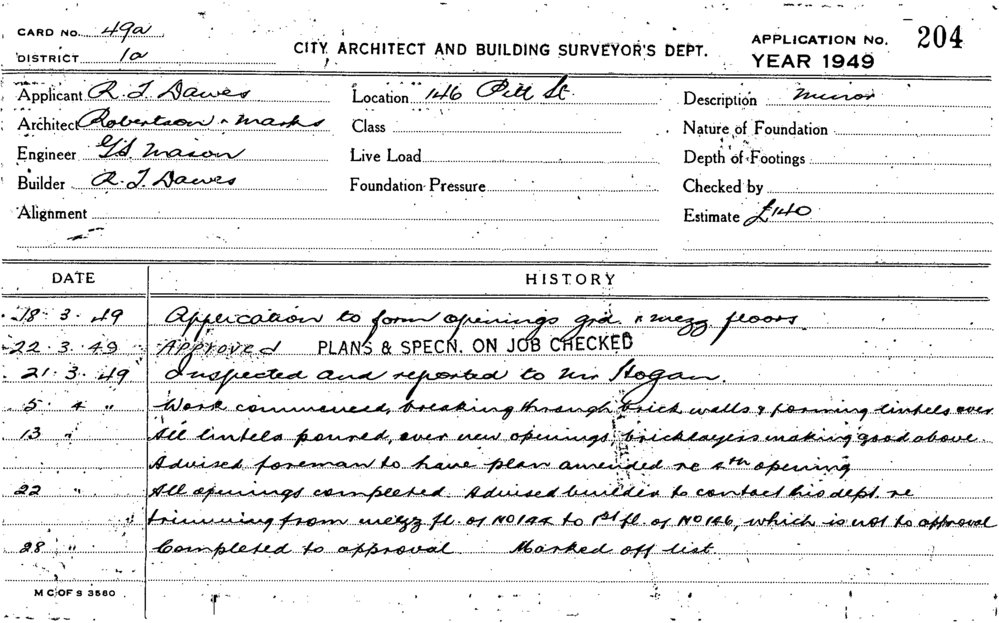 CARD NO. 49a
DISTRICT 1a
CITY ARCHITECT AND BUILDING SURVEYOR'S DEPT.
APPLICATION No. 204
YEAR 1949
Applicant R. T. Dawes
Architect Robertson & Marks
Engineer G.S. Mason
Builder R. T. Dawes
Alignment
Location 146 Pitt St.
Class
Live Load
Foundation Pressure
Description Minor
Nature of Foundation
Depth of Footings
Checked by
Estimate £140
DATE HISTORY
18. 3. 49 Application to form openings grd. & mezz floors
22. 3. 49 Approved PLANS & SPECN. ON JOB CHECKED
21. 3. 49 Inspected and reported to Mr Hogan.
5. 4 " Work commenced, breaking through brick walls & forming lintels over
13 " All lintels poured, over new openings, bricklayers making good above.
Advised foreman to have plan amended re 4th opening
22 " All openings completed. Advised builder to contact his dept. re
" trimming from mezz fl. of No 144 to 1st fl. of No 146, which is not to approval
28 " Completed to approval Marked off list.
M C OF S 3580